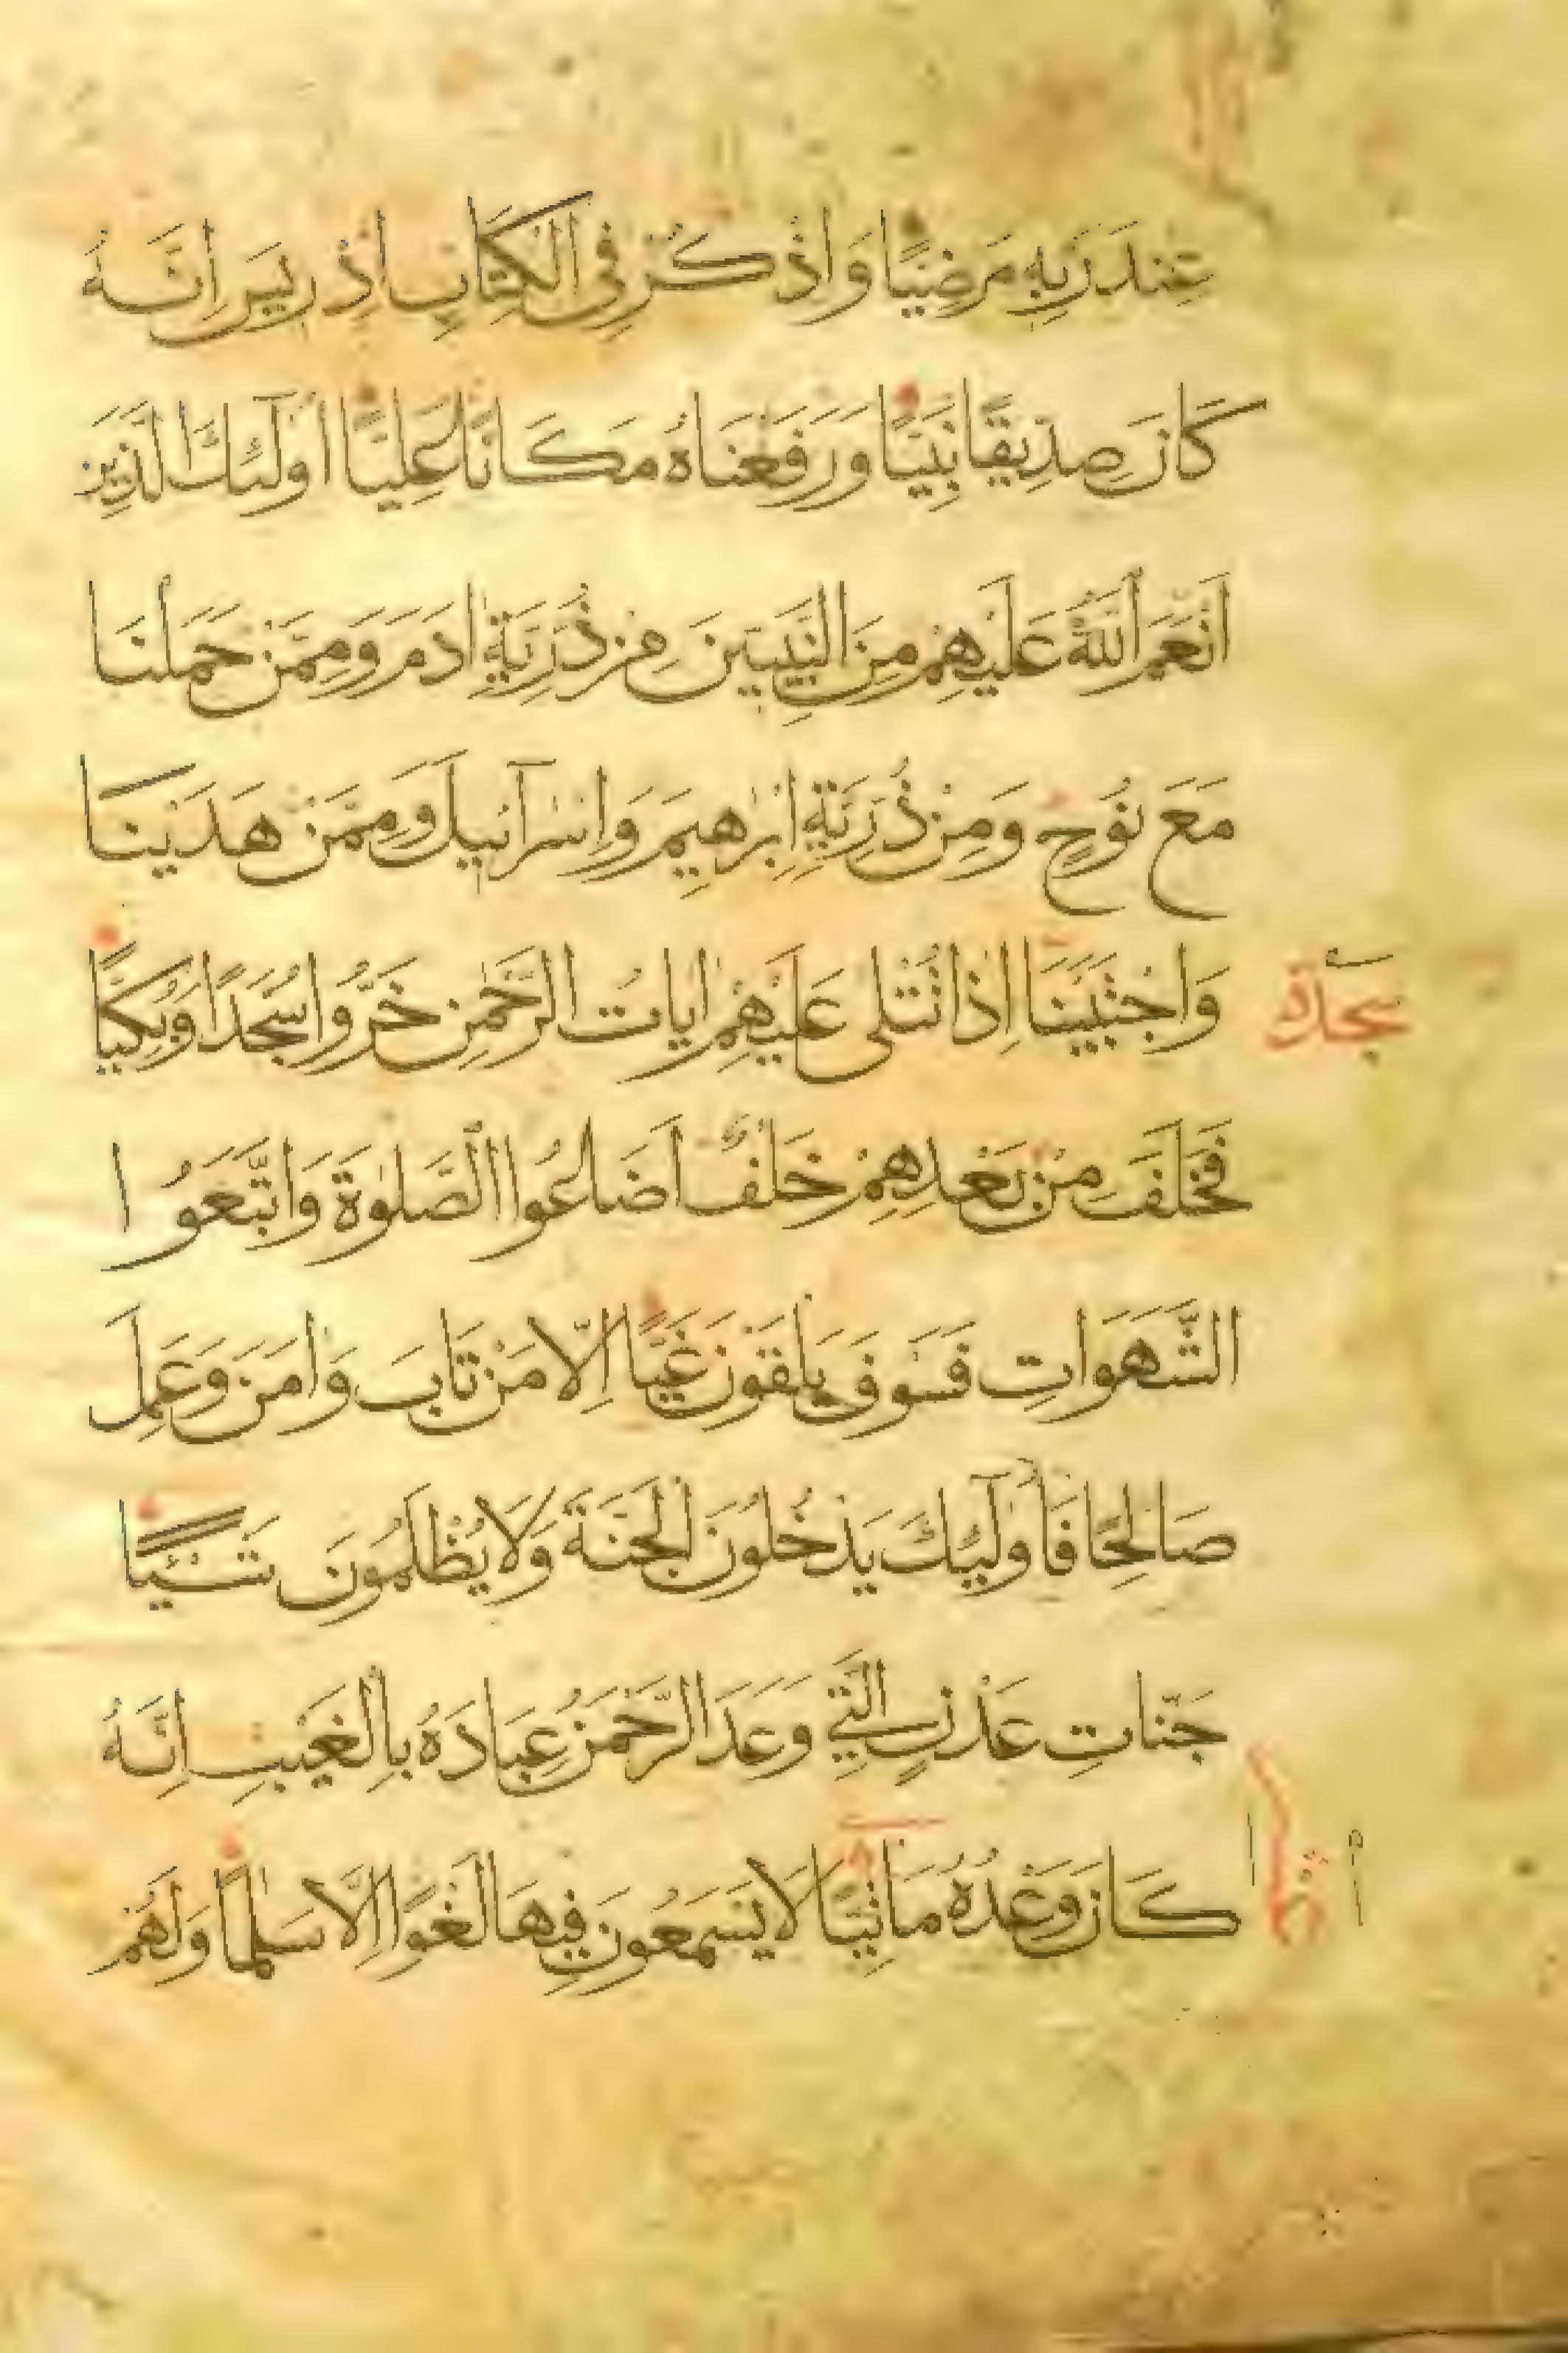 عِنْدَ رَبِّهِ مَرْضِيًّا وَاذْكُرْ فِى الْكِتَابِ اِدْرِيسَ اِنَّهُ
كَانَ صِدِّيقًا نَبِيًّا وَرَفَعْنَاهُ مَكَانًا عَلِيًّا اُولٰٓئِكَ الَّذِينَ
اَنْعَمَ اللّٰهُ عَلَيْهِمْ مِنَ النَّبِيِّينَ مِنْ ذُرِّيَّةِ اٰدَمَ وَمِمَّنْ حَمَلْنَا
مَعَ نُوحٍ وَمِنْ ذُرِّيَّةِ اِبْرٰهِيمَ وَاِسْرَآئِيلَ وَمِمَّنْ هَدَيْنَا
وَاجْتَبَيْنَا اِذَا تُتْلٰى عَلَيْهِمْ اٰيَاتُ الرَّحْمٰنِ خَرُّوا سُجَّدًا وَبُكِيًّا
سجدة
فَخَلَفَ مِنْ بَعْدِهِمْ خَلْفٌ اَضَاعُوا الصَّلٰوةَ وَاتَّبَعُوا
الشَّهَوَاتِ فَسَوْفَ يَلْقَوْنَ غَيًّا اِلَّا مَنْ تَابَ وَاٰمَنَ وَعَمِلَ
صَالِحًا فَاُولٰٓئِكَ يَدْخُلُونَ الْجَنَّةَ وَلَا يُظْلَمُونَ شَيْئًا
جَنَّاتِ عَدْنٍ الَّتِي وَعَدَ الرَّحْمٰنُ عِبَادَهُ بِالْغَيْبِ اِنَّهُ
كَانَ وَعْدُهُ مَاْتِيًّا لَا يَسْمَعُونَ فِيهَا لَغْوًا اِلَّا سَلٰمًا وَلَهُمْ